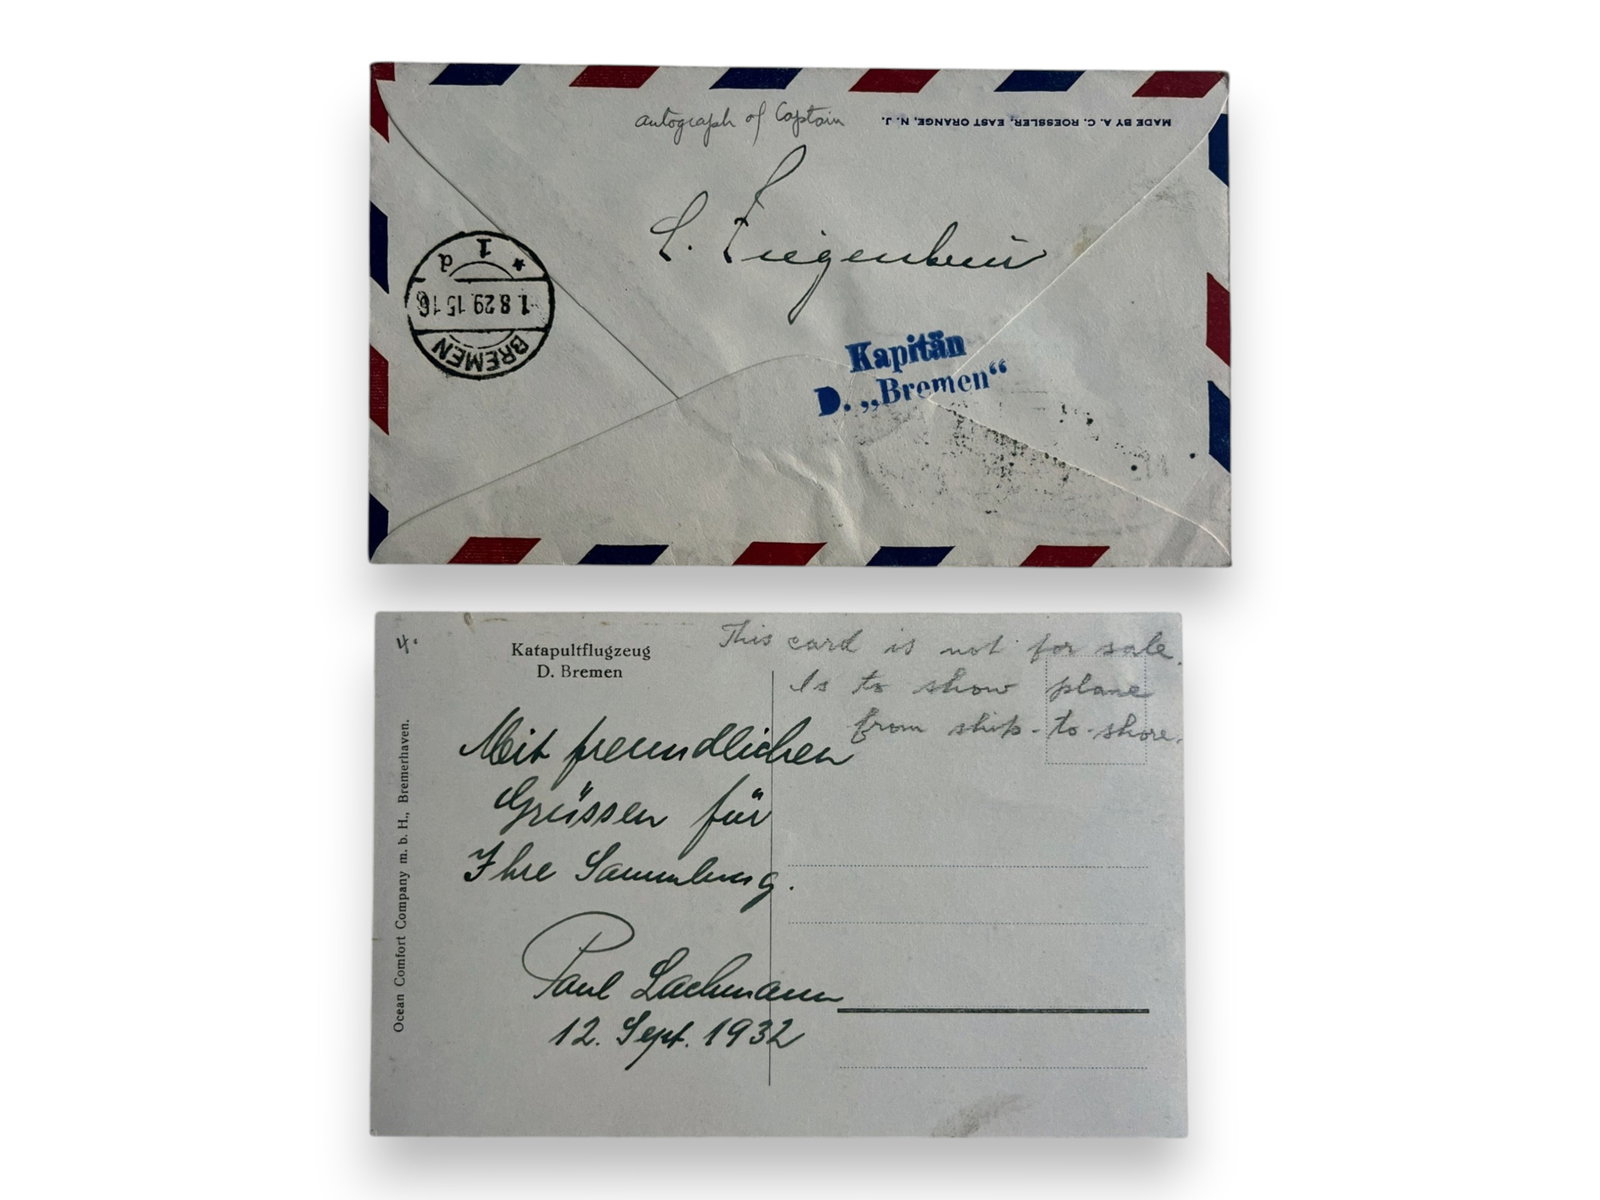 autograph of Captain
MADE BY A. C. ROESSLER, EAST ORANGE, N. J.
L. Ziegenbein
Kapitän
D. „Bremen“
BREMEN
1.8.29.15-16
* 1 d
4.
Katapultflugzeug
D. Bremen
This card is not for sale.
Is to show plane
from ship-to-shore.
Mit freundlichen
Grüssen für
Ihre Sammlung.
Paul Lachmann
12. Sept. 1932
Ocean Comfort Company m. b. H., Bremerhaven.